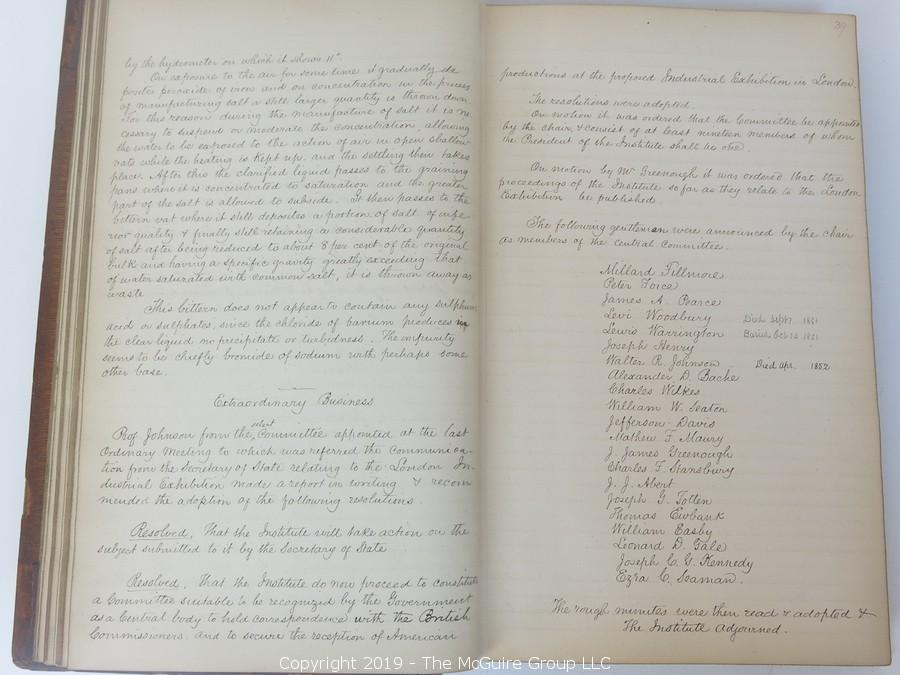 by the hydrometer on which it shows 11°.
On exposure to the air for some time it gradually de
posites peroxide of iron and on concentration in the process
of manufacturing salt a still larger quantity is thrown down
For this reason during the manufacture of salt it is ne
cessary to suspend or moderate the concentration, allowing
the water to be exposed to the action of air in open shallow
vats while the heating is kept up, and the settling then takes
place. After this the clarified liquid passes to the graining
pans where it is concentrated to saturation and the greater
part of the salt is allowed to subside. It then passes to the
bittern vat where it still deposites a portion of salt of infe
rior quality & finally still retaining a considerable quantity
of salt after being reduced to about 8 per cent of the original
bulk and having a specific gravity greatly exceeding that
of water saturated with common salt, it is thrown away as
waste
This bittern does not appear to contain any sulphuric
acid or sulphates, since the chloride of barium produces in
the clear liquid no precipitate or turbidness. The impurity
seems to be chiefly bromide of sodium with perhaps some
other base.
Extraordinary Business
Prof Johnson from the select Committee appointed at the last
Ordinary Meeting to which was referred the communica-
tion from the Secretary of State relating to the London In-
dustrial Exhibition made a report in writing & recom
mended the adoption of the following resolutions.
Resolved, That the Institute will take action on the
subject submitted to it by the Secretary of State
Resolved, that the Institute do now proceed to constitute
a Committee suitable to be recognized by the Government
as a Central body to hold correspondence with the British
Commissioners and to secure the reception of American
39
productions at the proposed Industrial Exhibition in London.
The resolutions were adopted.
On motion it was ordered that the Committee be appointed
by the chair & consist of at least nineteen members of whom
the President of the Institute shall be one.
On motion by Mr Greenough it was ordered that the
proceedings of the Institute so far as they relate to the London
Exhibition be published
The following gentlemen were announced by the chair
as members of the Central Committee.
Millard Fillmore
Peter Force
James A. Pearce
Levi Woodbury Died Sept 1851
Lewis Warrington Buried Oct 12 1851
Joseph Henry
Walter R. Johnson Died Apr. 1852
Alexander D. Bache
Charles Wilkes
William W. Seaton
Jefferson Davis
Mathew F. Maury
J. James Greenough
Charles F. Stansbury
J. J. Abert
Joseph G. Totten
Thomas Ewbank
William Easby
Leonard D. Gale
Joseph C. G. Kennedy
Ezra C. Seaman.
The rough minutes were then read & adopted &
The Institute Adjourned.
Copyright 2019 - The McGuire Group LLC